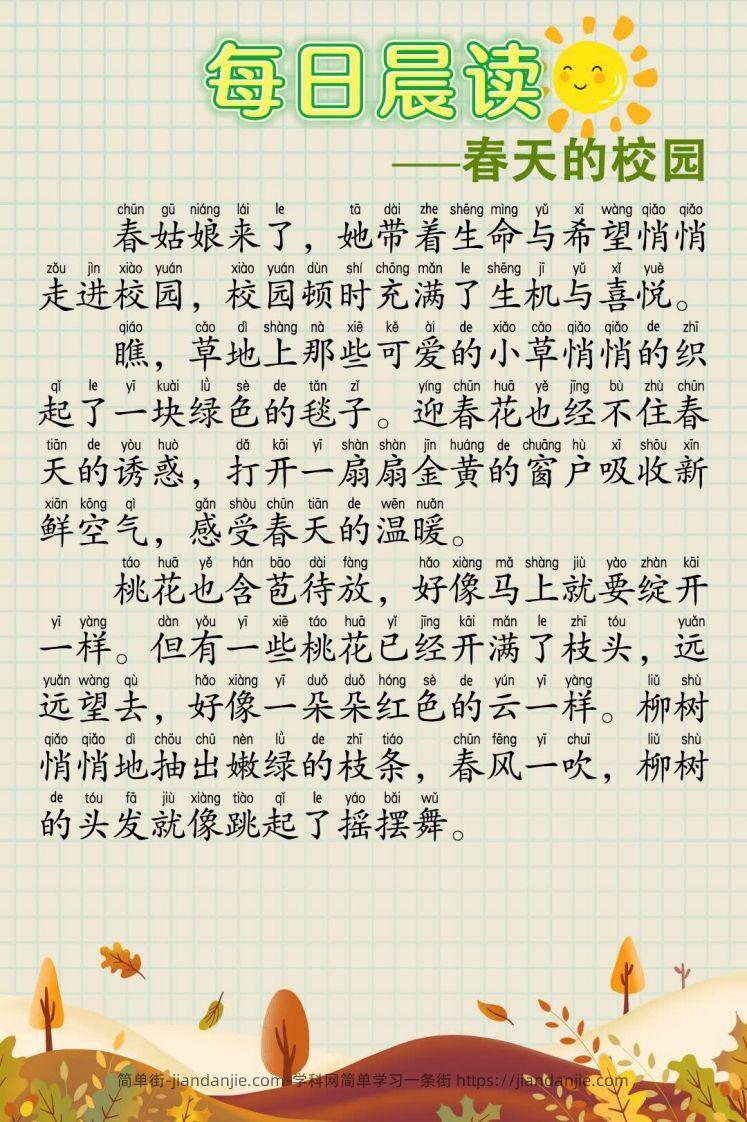 每日晨读
——春天的校园
chūn gū niáng lái le tā dài zhe shēng mìng yǔ xī wàng qiǎo qiǎo
春姑娘来了，她带着生命与希望悄悄
zǒu jìn xiào yuán xiào yuán dùn shí chōng mǎn le shēng jī yǔ xǐ yuè
走进校园，校园顿时充满了生机与喜悦。
qiáo cǎo dì shàng nà xiē kě ài de xiǎo cǎo qiǎo qiǎo de zhī
瞧，草地上那些可爱的小草悄悄的织
qǐ le yī kuài lǜ sè de tǎn zǐ yíng chūn huā yě jīng bù zhù chūn
起了一块绿色的毯子。迎春花也经不住春
tiān de yòu huò dǎ kāi yī shàn shàn jīn huáng de chuāng hù xī shōu xīn
天的诱惑，打开一扇扇金黄的窗户吸收新
xiān kōng qì gǎn shòu chūn tiān de wēn nuǎn
鲜空气，感受春天的温暖。
táo huā yě hán bāo dài fàng hǎo xiàng mǎ shàng jiù yào zhàn kāi
桃花也含苞待放，好像马上就要绽开
yī yàng dàn yǒu yī xiē táo huā yǐ jīng kāi mǎn le zhī tóu yuǎn
一样。但有一些桃花已经开满了枝头，远
yuǎn wàng qù hǎo xiàng yī duǒ duǒ hóng sè de yún yī yàng liǔ shù
远望去，好像一朵朵红色的云一样。柳树
qiǎo qiǎo dì chōu chū nèn lǜ de zhī tiáo chūn fēng yī chuī liǔ shù
悄悄地抽出嫩绿的枝条，春风一吹，柳树
de tóu fā jiù xiàng tiào qǐ le yáo bǎi wǔ
的头发就像跳起了摇摆舞。
简单街-jiandanjie.com-学科网简单学习一条街 https://jiandanjie.com